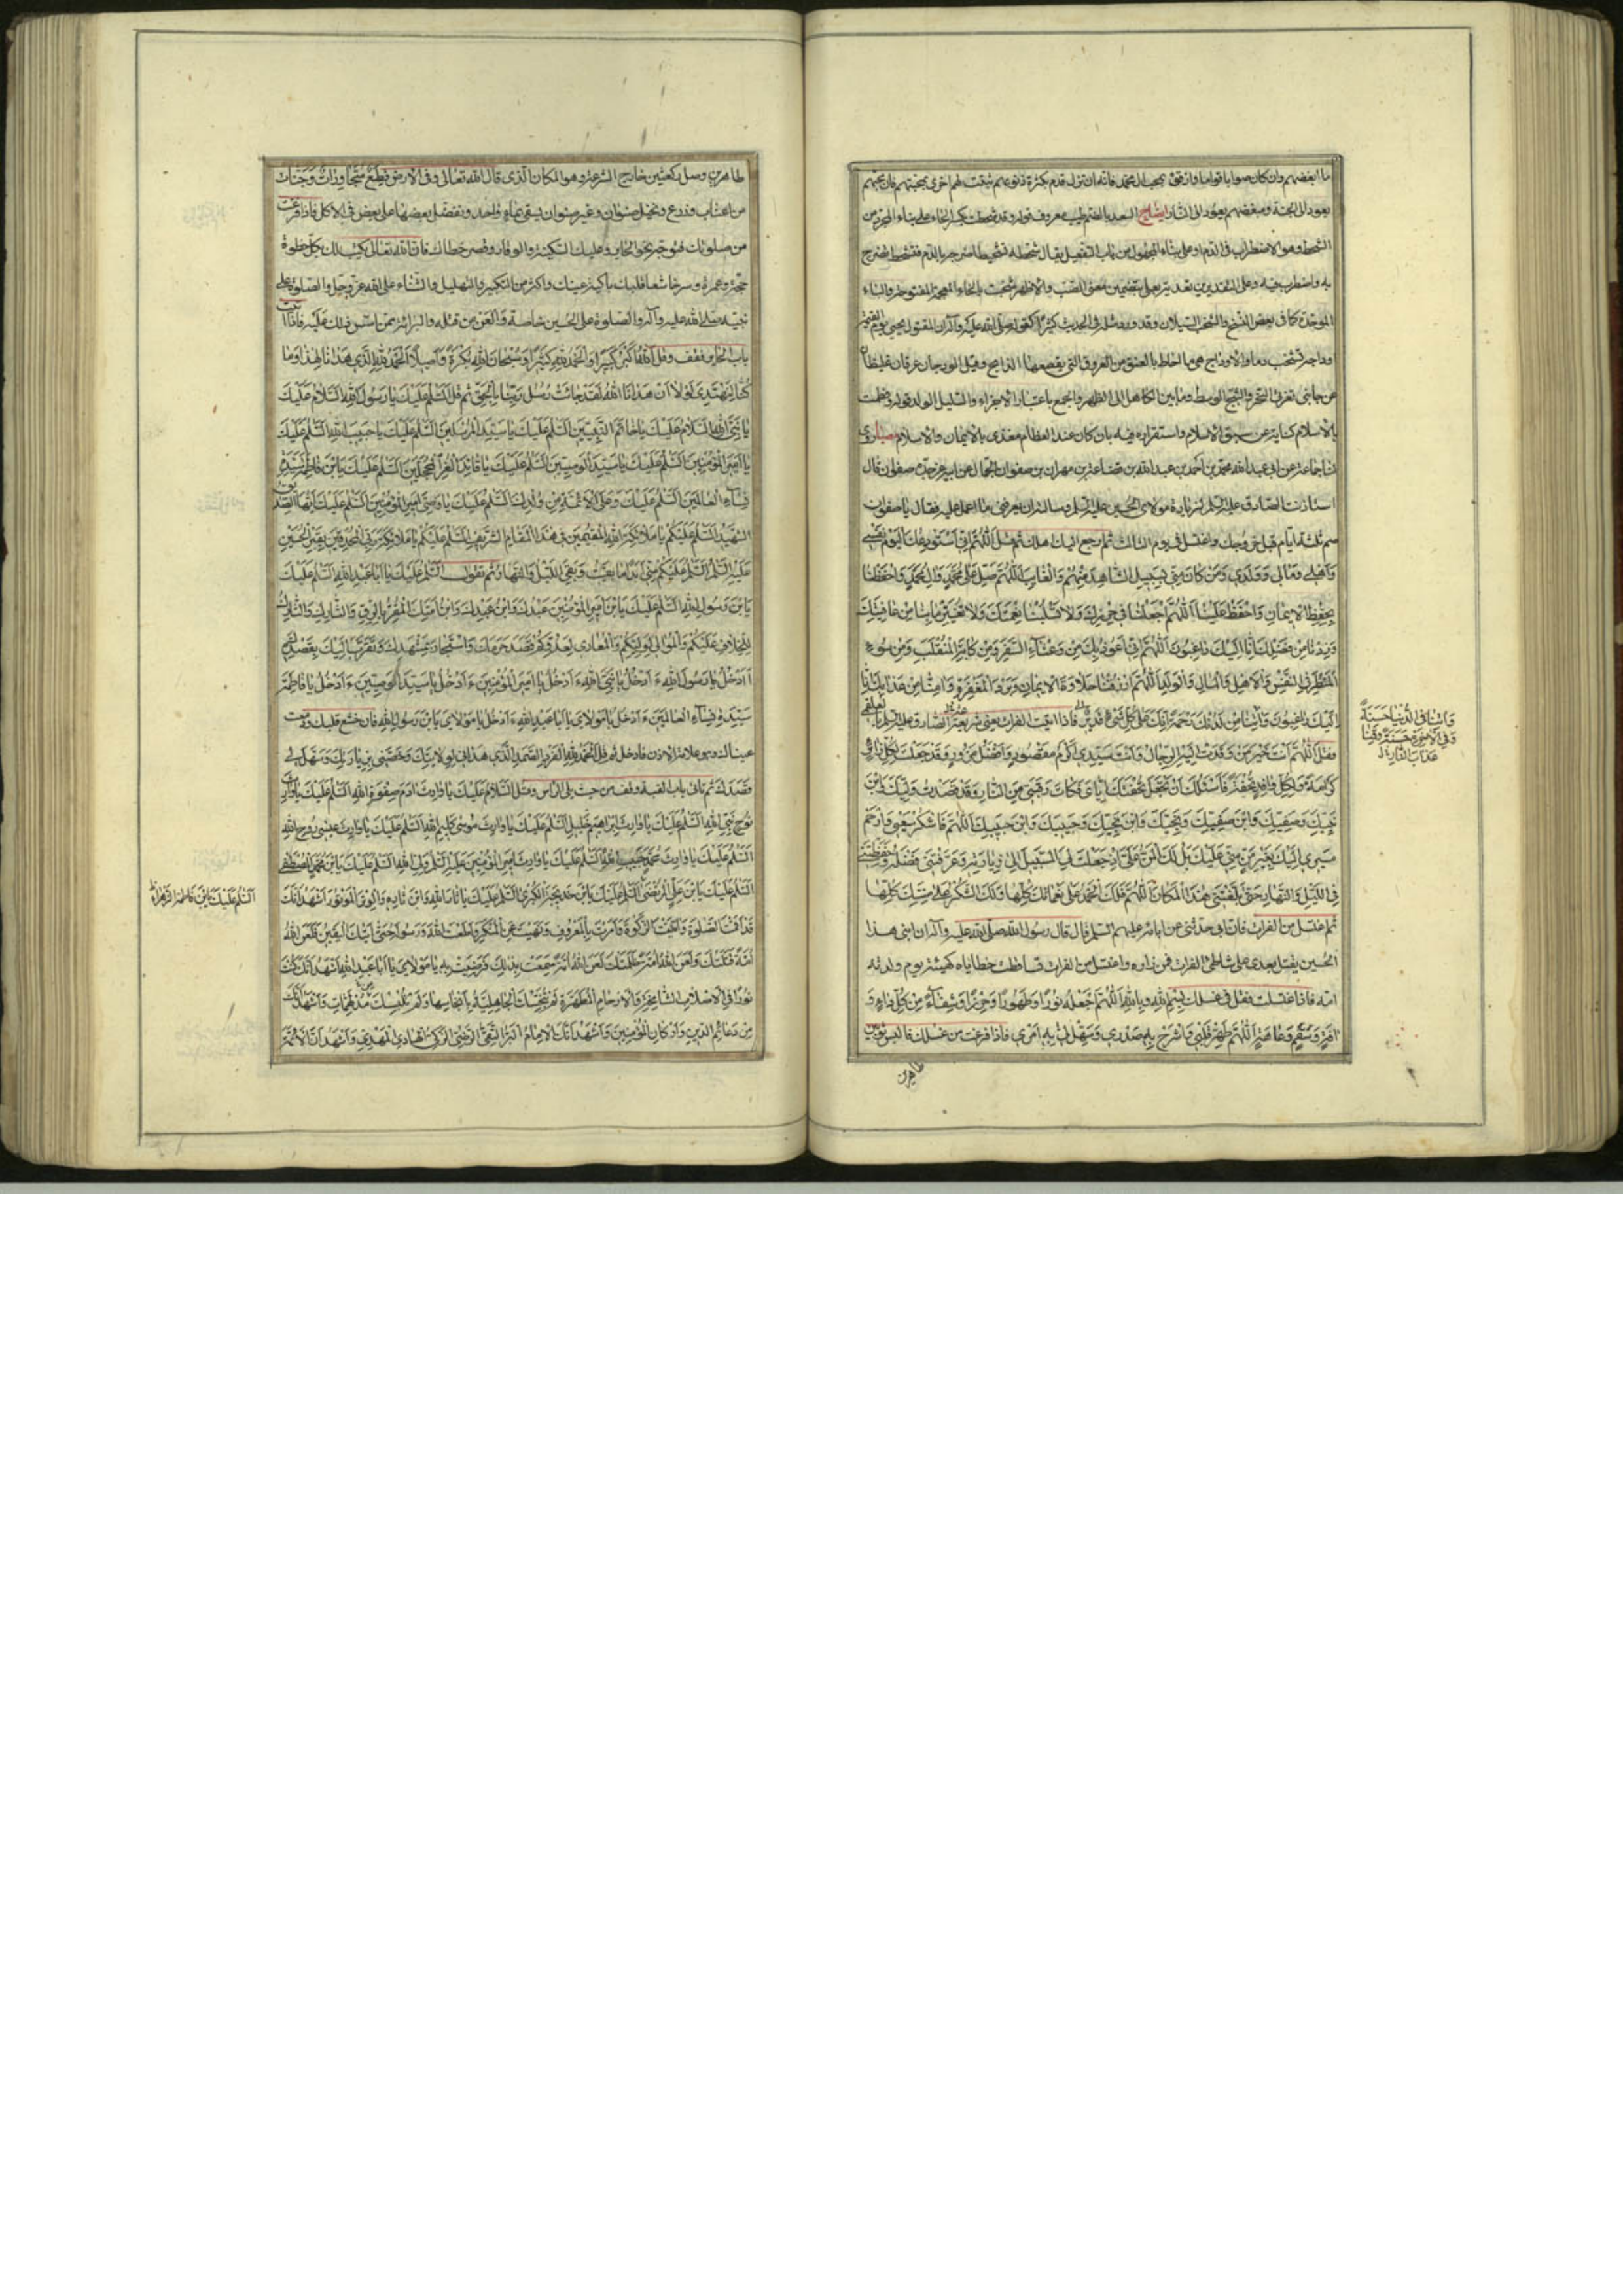 ما ابغضهم وان كان صواما قواما وارفق بمحب آل محمد فانه ان تزل قدم بكثرة ذنوبهم ثبتت لهم اخرى بمحبتهم فان محبهم
يعود الى الجنة ومبغضهم يعود الى النار ايضاح السعد بالضم طيب معروف قوله وقد شحطت بكسر الحاء على بناء المجرد من
الشحط وهو الاضطراب في الدم او على بناء المجهول من باب التفعيل يقال شحطه تشحيطا ضرجه بالدم فتشحط تضرج
به واضطرب فيه وعلى التقديرين تعديته بعلى بتضمين معنى الصب والاظهر شخبت بالخاء المعجمة المفتوحة والباء
الموحدة كما في بعض النسخ والشخب السيلان وقد ورد مثله في الحديث كثيرا كقوله صلى الله عليه وآله ان المقتول يجيئ يوم القيمة
واوداجه تشخب دما والاوداج هي ما احاط بالعنق من العروق التي يقطعها الذابح وقيل الودجان عرقان غليظان
عن جانبي ثغرة النحر والثبج الوسط وما بين الكاهل الى الظهر والجمع باعتبار الاجزاء والسليل الولد قوله
بالاسلام كناية عن سبق الاسلام واستقراره فيه بان كان عند العظام مغتذى بالايمان والاسلام مصبا روى
لنا جماعة عن ابي عبد الله محمد بن احمد بن عبد الله بن قضاعة بن مهران بن صفوان الجمال عن ابيه عن جده صفوان قال
استاذنت الصادق عليه السلم لزيارة مولاي الحسين عليه السلم وسالته ان يعرفني ما اعمل عليه فقال يا صفوان
صم ثلثة ايام قبل خروجك واغتسل في يوم الثالث ثم اجمع اليك اهلك ثم قل اللهم اني استودعك اليوم نفسي
واهلي ومالي وولدي ومن كان مني بسبيل الشاهد منهم والغائب اللهم صل على محمد وآل محمد واحفظنا
بحفظ الايمان واحفظ علينا اللهم اجعلنا في حرزك ولا تسلبنا نعمتك ولا تغير ما بنا من عافيتك
وزدنا من فضلك انا اليك راغبون اللهم اني اعوذ بك من وعثاء السفر ومن كابة المنقلب ومن سوء
المنظر في النفس والاهل والمال والولد اللهم ارزقنا حلاوة الايمان وبرد المغفرة وامنا من عذابك انا
اليك راغبون وآتنا من لدنك رحمة انك على كل شئ قدير فاذا اتيت الفرات يعني شريعة الصادق عليه السلم بالعلقمي
فقل اللهم انت خير من وفدت اليه الرجال وانت سيدي اكرم مقصود وافضل مزور وقد جعلت لكل زائر
كرامة ولكل وافد تحفة فاسئلك ان تجعل تحفتك اياي فكاك رقبتي من النار وقد قصدت وليك وابن
نبيك وصفيك وابن صفيك ونجيك وابن نجيك وحبيبك وابن حبيبك اللهم فاشكر سعيي وارحم
مسيري اليك بغير من مني عليك بل لك المن علي اذ جعلت لي السبيل الى زيارته وعرفتني فضله وحفظتني
في الليل والنهار حتى بلغتني هذا المكان اللهم فلك الحمد على نعمائك كلها ولك الشكر على مننك كلها
ثم اغتسل من الفرات فان ابي حدثني عن ابائه عليهم السلم قال قال رسول الله صلى الله عليه وآله ان ابني هذا
الحسين يقتل بعدي على شاطئ الفرات فمن زاره واغتسل من الفرات تساقطت خطاياه كهيئة يوم ولدته
امه فاذا اغتسلت فقل في غسلك بسم الله وبالله اللهم اجعله نورا وطهورا وحرزا وشفاء من كل داء و
افة وسقم وعاهة اللهم طهر قلبي واشرح به صدري وسهل لي به امري فاذا فرغت من غسلك فالبس ثوبين
طاهرين
وآتنا في الدنيا حسنة
وفي الآخرة حسنة وقنا
عذاب النار
طاهرين وصل ركعتين خارج الشرعة وهو المكان الذي قال الله تعالى وفي الارض قطع متجاورات وجنات
من اعناب وزرع ونخيل صنوان وغير صنوان يسقى بماء واحد ونفضل بعضها على بعض في الاكل فاذا فرغت
من صلوتك فتوجه نحو الحاير وعليك السكينة والوقار وقصر خطاك فان الله تعالى يكتب لك بكل خطوة
حجة وعمرة وسر خاشعا قلبك باكية عينك واكثر من التكبير والتهليل والثناء على الله عز وجل والصلوة على
نبيه صلى الله عليه وآله والصلوة على الحسين خاصة والعن من قتله والبرائة ممن اسس ذلك عليه فاذا اتيت
باب الحاير فقف وقل الله اكبر كبيرا والحمد لله كثيرا وسبحان الله بكرة واصيلا الحمد لله الذي هدانا لهذا وما
كنا لنهتدي لولا ان هدانا الله لقد جائت رسل ربنا بالحق ثم قل السلم عليك يا رسول الله السلام عليك
يا نبي الله السلام عليك يا خاتم النبيين السلم عليك يا سيد المرسلين السلم عليك يا حبيب الله السلم عليك
يا امير المؤمنين السلم عليك يا سيد الوصيين السلم عليك يا قائد الغر المحجلين السلم عليك يابن فاطمة سيدة
نساء العالمين السلم عليك وعلى الائمة من ولدك السلم عليك يا وصي امير المؤمنين السلم عليك ايها الصديق
الشهيد السلم عليكم يا ملائكة الله المقيمين في هذا المقام الشريف السلم عليكم يا ملائكة ربي المحدقين بقبر الحسين
عليه السلم السلم عليكم مني ابدا ما بقيت وبقي الليل والنهار ثم تقول السلم عليك يا ابا عبد الله السلم عليك
يابن رسول الله السلم عليك يابن امير المؤمنين عبدك وابن عبدك وابن امتك المقر بالرق والتارك
للخلاف عليكم والموالي لوليكم والمعادي لعدوكم قصد حرمك واستجار بمشهدك وتقرب اليك بقصدك
أادخل يا رسول الله ءادخل يا نبي الله ءادخل يا امير المؤمنين ءادخل يا سيد الوصيين ءادخل يا فاطمة
سيدة نساء العالمين ءادخل يا مولاي يا ابا عبد الله ءادخل يا مولاي يابن رسول الله فان خشع قلبك ودمعت
عيناك فهو علامة الاذن فادخل ثم قل الحمد لله الفرد الصمد الذي هداني لولايتك وخصني بزيارتك وسهل لي
قصدك ثم تاتي باب القبة وقف من حيث يلي الراس وقل السلام عليك يا وارث ادم صفوة الله السلم عليك يا وارث
نوح نبي الله السلم عليك يا وارث ابراهيم خليل الله السلم عليك يا وارث موسى كليم الله السلم عليك يا وارث عيسى روح الله
السلم عليك يا وارث محمد حبيب الله السلم عليك يا وارث امير المؤمنين عليه السلم ولي الله السلم عليك يابن محمد المصطفى
السلم عليك يابن علي المرتضى السلم عليك يابن خديجة الكبرى السلم عليك يا ثار الله وابن ثاره والوتر الموتور اشهد انك
قد اقمت الصلوة واتيت الزكوة وامرت بالمعروف ونهيت عن المنكر واطعت الله ورسوله حتى اتيك اليقين فلعن الله
امة قتلتك ولعن الله امة ظلمتك ولعن الله امة سمعت بذلك فرضيت به يا مولاي يا ابا عبد الله اشهد انك كنت
نورا في الاصلاب الشامخة والارحام المطهرة لم تنجسك الجاهلية بانجاسها ولم تلبسك من مدلهمات ثيابها واشهد انك
من دعائم الدين واركان المؤمنين واشهد انك الامام البر التقي الرضي الزكي الهادي المهدي واشهد ان الائمة
السلم عليك يابن فاطمة الزهراء